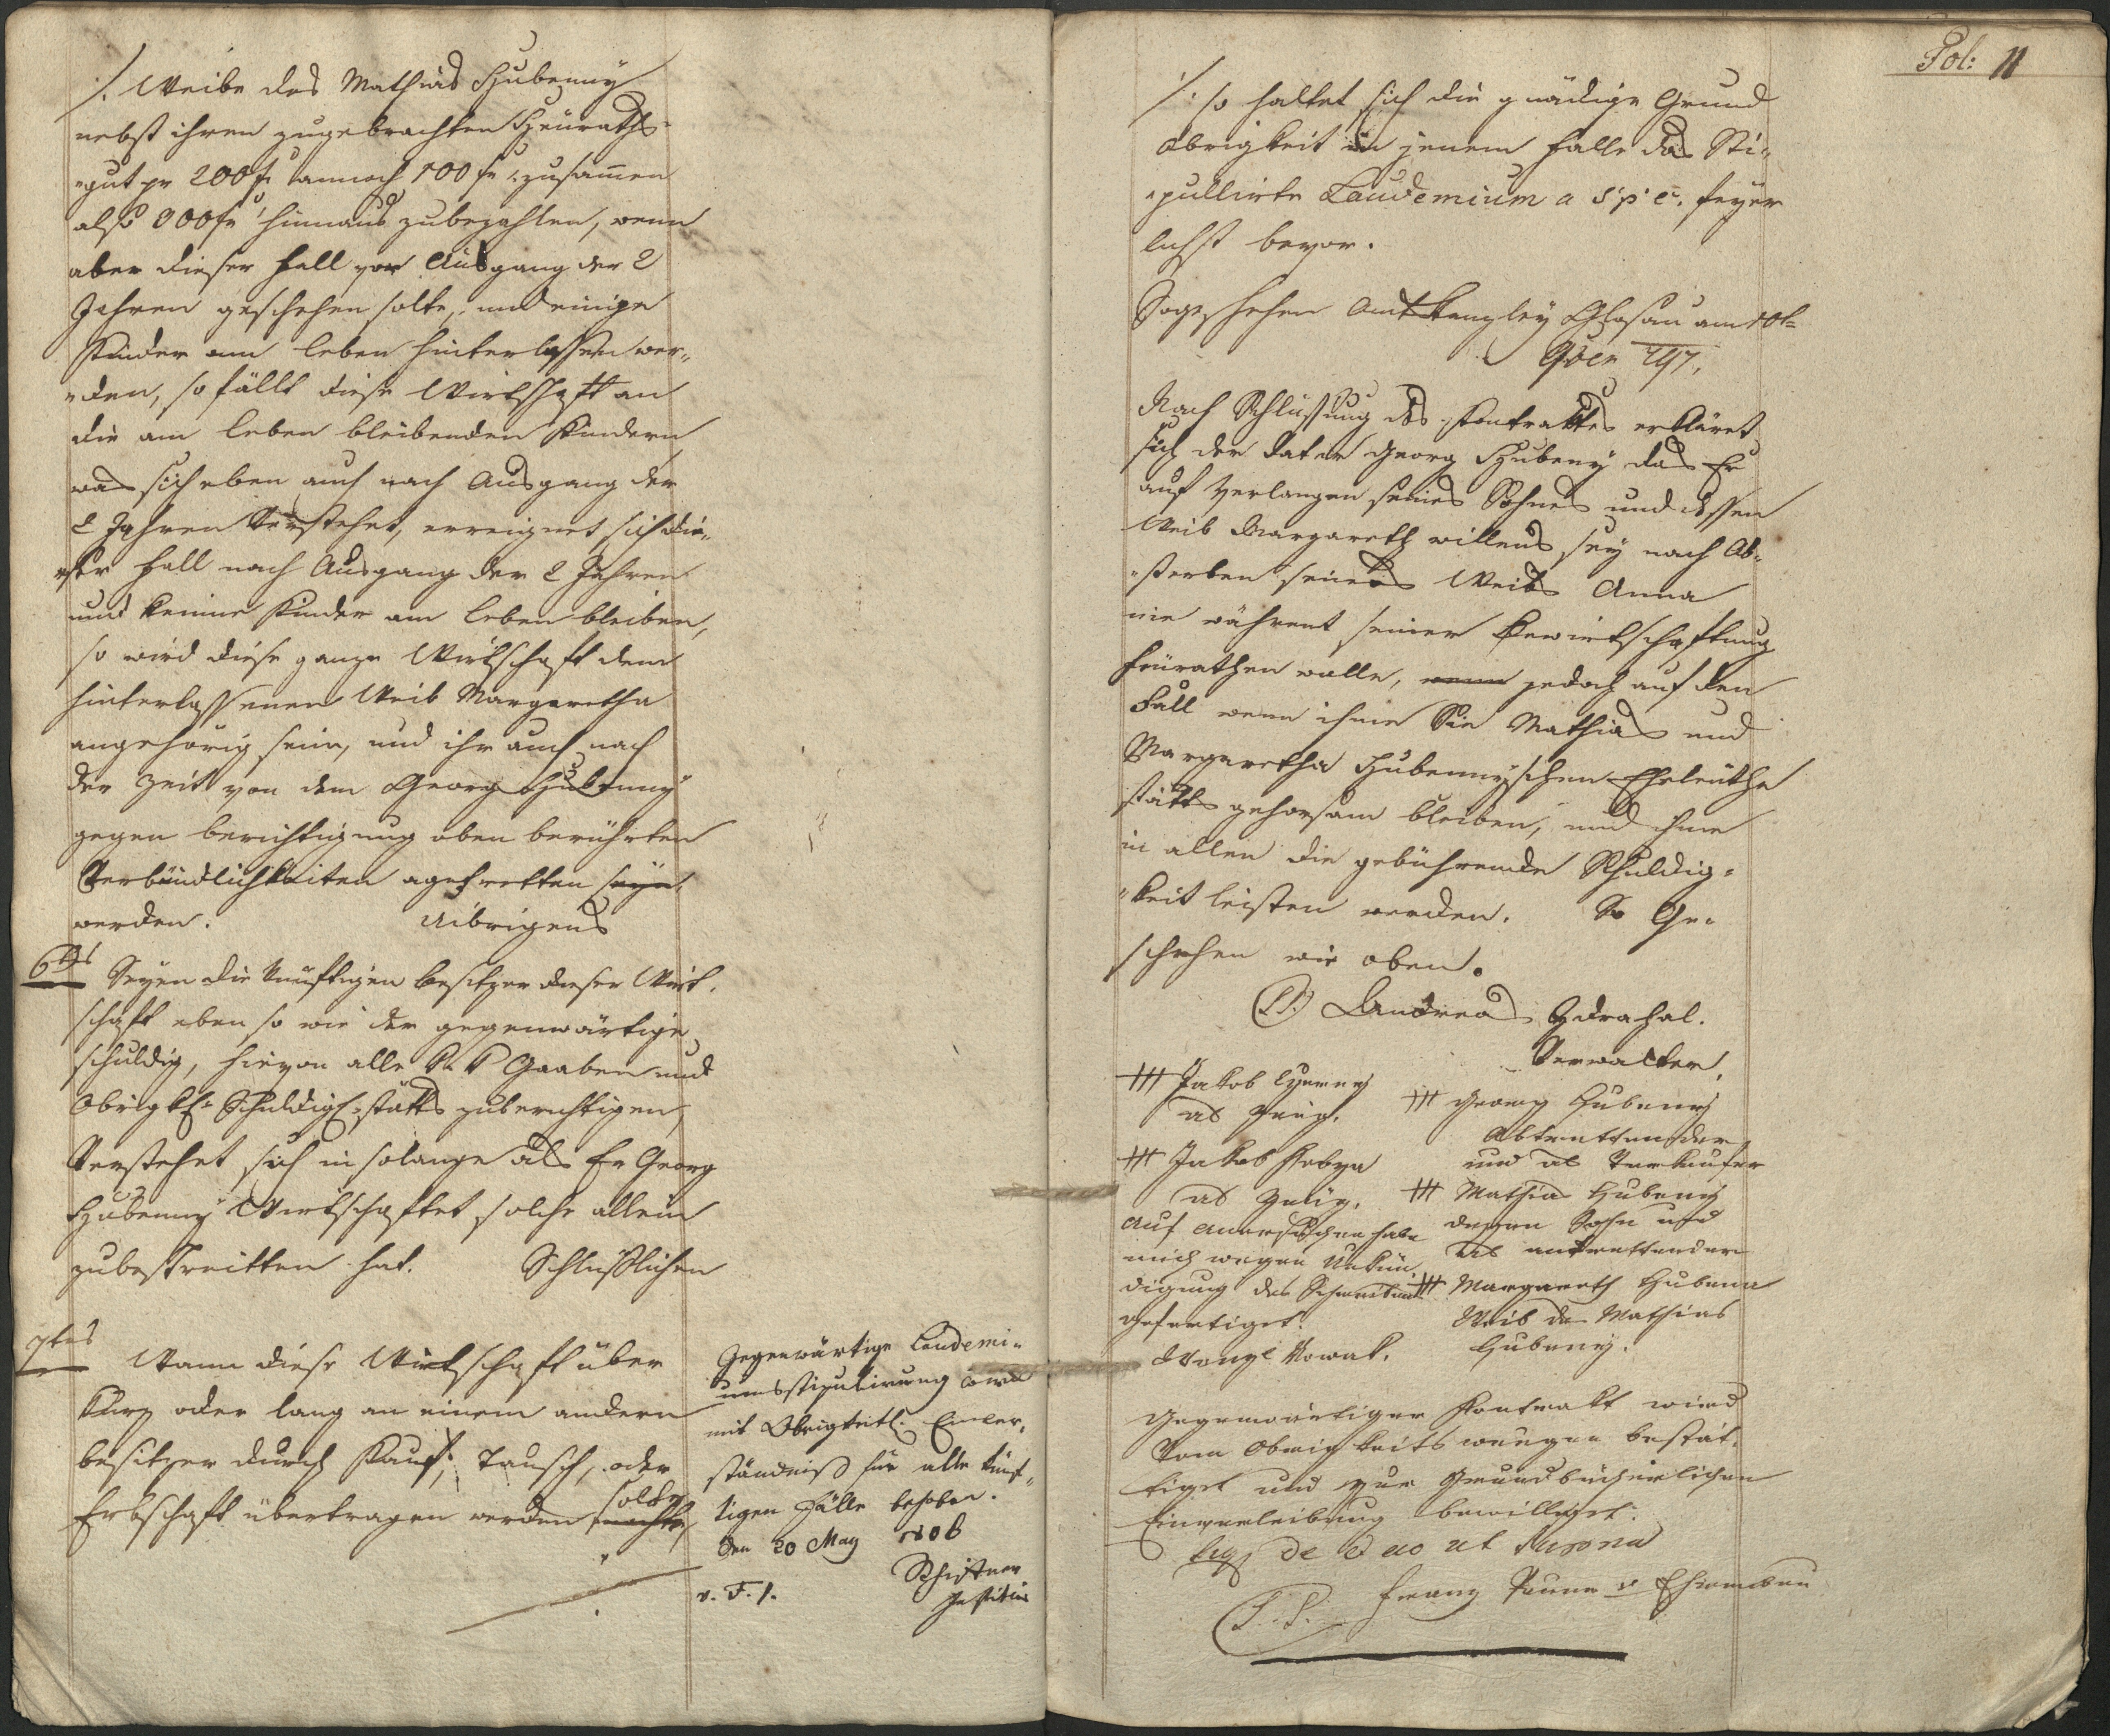 /. Weibe des Mathias Hubenny
nebst ihren zugebrachten Heuraths-
„gut pr 200 f annoch 100 f zusammen
also 300 f hinaus zubezahlen, wenn
aber dieser Fall vor Ausgang der 2
Jahren geschehen solte, und einige
Kinder am leben hinterlassen wer-
„den, so fällt diese Wirtschaft an
die am leben bleibenden Kindern
was sich eben auch nach Ausgang der
2 Jahren Verstehet, erreignet sich die-
„ser Fall nach Ausgang der 2 Jahren
und keinne Kinder am leben bleiben,
so wird diese ganze Wirtschaft dem
hinterlassenen Weib Margaretha
angehörig sein, und ihr auch nach
der Zeit von dem Georg Hubenny
gegen berichtigung oben berührten
Verbündlichkeiten agetretten seyn
werden. Uibrigens
6tens Seyen die künftigen besitzer dieser Wirt-
schaft eben so wie der gegenwärtige
schuldig, hievon alle K: K Gaaben und
Obrigkl: Schuldigk: stätts zuberichtigen,
Verstehet sich in solange als Er Georg
Hubenny Wirtschaftet, solche allein
zubestreitten hat. Schlüßlichen
7tens Wann diese Wirtschaft über
kurz oder lang an einem andern
besitzer durch Kauf, Tausch, oder
Erbschaft übertragen werden solte
möchte,
Gegenwärtige Laudemi-
umsstipulirung
mit Obrigkeitl: Einver-
ständniß für alle künf-
tigen Fälle behoben.
den 20 May
Schistner
Justitiär
Fol: 11
/: so haltet sich die gnädige Grund
obrigkeit in jenem Falle das Sti-
„pullirte Laudemium a 5 p c. feyer
lichst bevor.
So geschehen Amtskanzley am 10t
9ber 797.
Nach Schlüssung des Kontraktes erkläret
sich der Vater Georg Hubeny das Er
auf Verlangen seines Sohnes und dessen
Weib Margareth willens sey nach Ab-
„sterben seines Weibs Anna
nie währent seiner Bewirtschaftung
heurathen wolle, wenn jedoch auf den
Fall wenn ihme Sie Mathias und
Margaretha Hubennyschen Eheleüthe
stätts gehorsam bleiben, und ihme
in allen die gebührende Schuldig-
„keit leisten werden. So Ge-
schehen wie oben.
Andreas Zdrahal.
Verwalter.
+++ Jakob
als Zeug.
+++ Jakob
als Zeüg.
auf anersuchen habe
mich wegen Unkün
digung des Schreibens
gefertiget.
Nowak.
+++ Georg Hubeny
Abtrettender
und als Verkäufer
+++ Mathias Hubeny
dessen Sohn und
als antrettender
+++ Margareth Hubena
Weib des Mathias
Hubeny.
Gegenwärtiger Kontrakt wird
Vom Obrigkeits weegen bestät-
tiget und zur Grundbücherlichen
Einverleibung bewilliget.
de dato ut supra
(L.S.) Franz